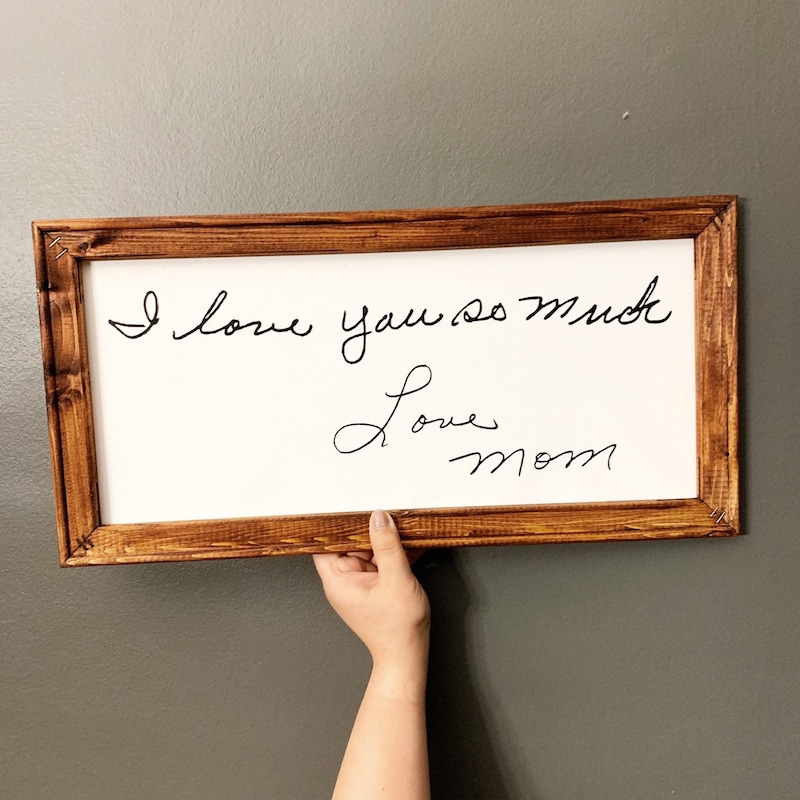 I love you so much
Love
mom